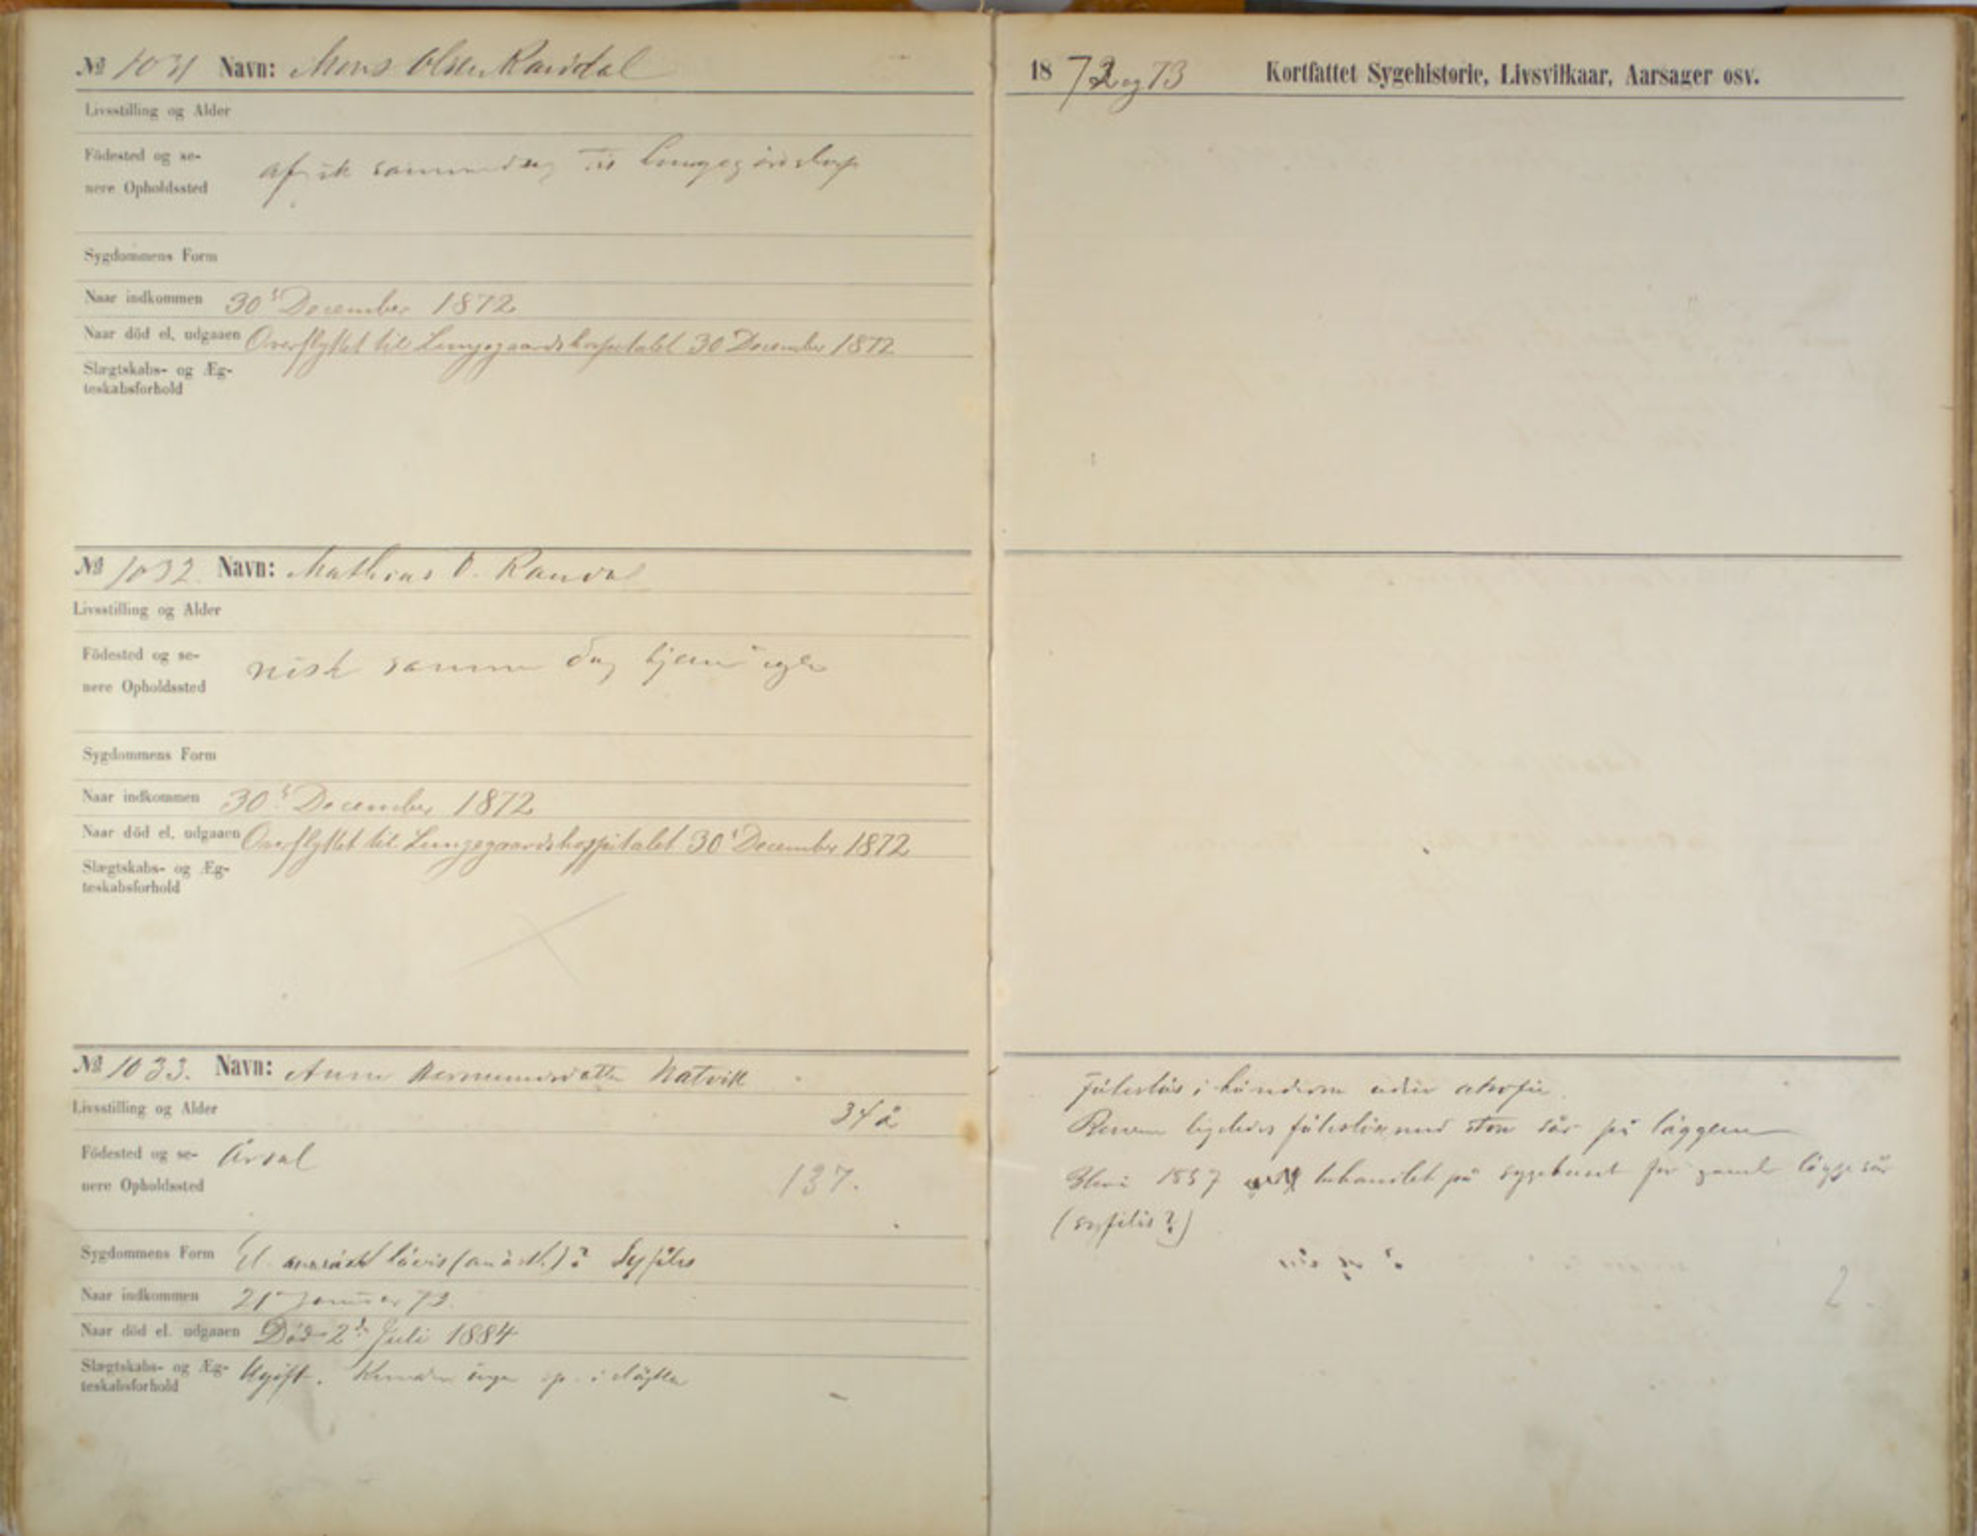 № 1031 Navn: Mons Olsen Randal
Livsstilling og Alder
Födested og se-
nere Opholdssted
samme dag til
Sygdommens Form
Naar indkommen 30' December 1872
Naar död el. udgaaen Overflyttet til Lungegaardshospitalet 30 December 1872
Slægtskabs- og Æg-
teskabsforhold
№ 1032 Navn: Mathias O. Randal
Livsstilling og Alder
Födested og se-
nere Opholdssted
reist samme dag hjem igen
Sygdommens Form
Naar indkommen 30' December 1872
Naar död el. udgaaen Overflyttet til Lungegaardshospitalet 30' December 1872
Slægtskabs- og Æg-
teskabsforhold
№ 1033. Navn: Anne Natvik
Livsstilling og Alder 34 å
Födested og se- Årdal
nere Opholdssted 137.
Sygdommens Form Syfilis
Naar indkommen 21 Januar 73.
Naar död el. udgaaen Död 2' Juli 1884
Slægtskabs- og Æg- Ugift. Kender ingen sp. i slägten
teskabsforhold
1872 og 73 Kortfattet Sygehistorie, Livsvilkaar, Aarsager osv.
Föleslös i händerne uden atrofie
Benene ligeledes föleslöse med store sår på läggene
1857 behandlet på sygehuset for gamle läggesår
(syfilis?)
2